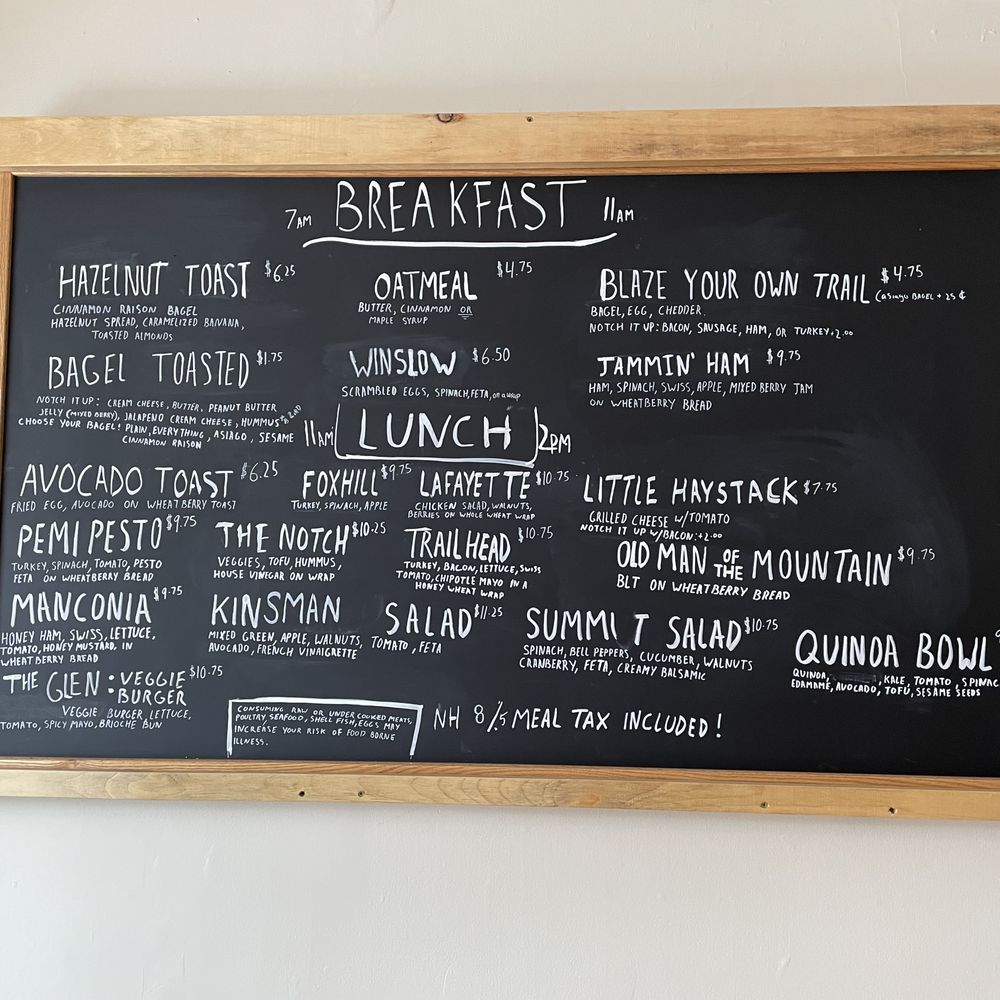 7AM BREAKFAST 11AM
HAZELNUT TOAST $6.25
CINNAMON RAISON BAGEL
HAZELNUT SPREAD, CARAMELIZED BANANA,
TOASTED ALMONDS
OATMEAL $4.75
BUTTER, CINNAMON OR
MAPLE SYRUP
BLAZE YOUR OWN TRAIL $4.75
(asiago BAGEL + 25 ¢
BAGEL, EGG, CHEDDER.
NOTCH IT UP: BACON, SAUSAGE, HAM, OR TURKEY +2.00
BAGEL TOASTED $1.75
NOTCH IT UP: CREAM CHEESE, BUTTER, PEANUT BUTTER
JELLY (MIXED BERRY), JALAPENO CREAM CHEESE, HUMMUS
CHOOSE YOUR BAGEL! PLAIN, EVERYTHING, ASIAGO, SESAME
CINNAMON RAISON
WINSLOW $6.50
SCRAMBLED EGGS, SPINACH, FETA, on a wrap
JAMMIN' HAM $9.75
HAM, SPINACH, SWISS, APPLE, MIXED BERRY JAM
ON WHEATBERRY BREAD
11AM LUNCH 2PM
AVOCADO TOAST $6.25
FRIED EGG, AVOCADO ON WHEATBERRY TOAST
FOXHILL $9.75
TURKEY, SPINACH, APPLE
LAFAYETTE $10.75
CHICKEN SALAD, WALNUTS,
BERRIES ON WHOLE WHEAT WRAP
LITTLE HAYSTACK $7.75
GRILLED CHEESE W/TOMATO
NOTCH IT UP W/BACON: +2.00
PEMI PESTO $9.75
TURKEY, SPINACH, TOMATO, PESTO
FETA ON WHEATBERRY BREAD
THE NOTCH $10.25
VEGGIES, TOFU, HUMMUS,
HOUSE VINEGAR ON WRAP
TRAIL HEAD $10.75
TURKEY, BACON, LETTUCE, SWISS
TOMATO, CHIPOTLE MAYO IN A
HONEY WHEAT WRAP
OLD MAN OF THE MOUNTAIN $9.75
BLT ON WHEATBERRY BREAD
MANCONIA $9.75
HONEY HAM, SWISS, LETTUCE,
TOMATO, HONEY MUSTARD, IN
WHEATBERRY BREAD
KINSMAN SALAD $11.25
MIXED GREEN, APPLE, WALNUTS, TOMATO, FETA
AVOCADO, FRENCH VINAIGRETTE
SUMMIT SALAD $10.75
SPINACH, BELL PEPPERS, CUCUMBER, WALNUTS
CRANBERRY, FETA, CREAMY BALSAMIC
QUINOA BOWL
QUINOA, KALE, TOMATO, SPINAC
EDAMAME, AVOCADO, TOFU, SESAME SEEDS
THE GLEN: VEGGIE BURGER $10.75
VEGGIE BURGER, LETTUCE,
TOMATO, SPICY MAYO, BRIOCHE BUN
CONSUMING RAW OR UNDER COOKED MEATS,
POULTRY, SEAFOOD, SHELL FISH, EGGS MAY
INCREASE YOUR RISK OF FOOD BORNE
ILLNESS.
NH 8.5% MEAL TAX INCLUDED!